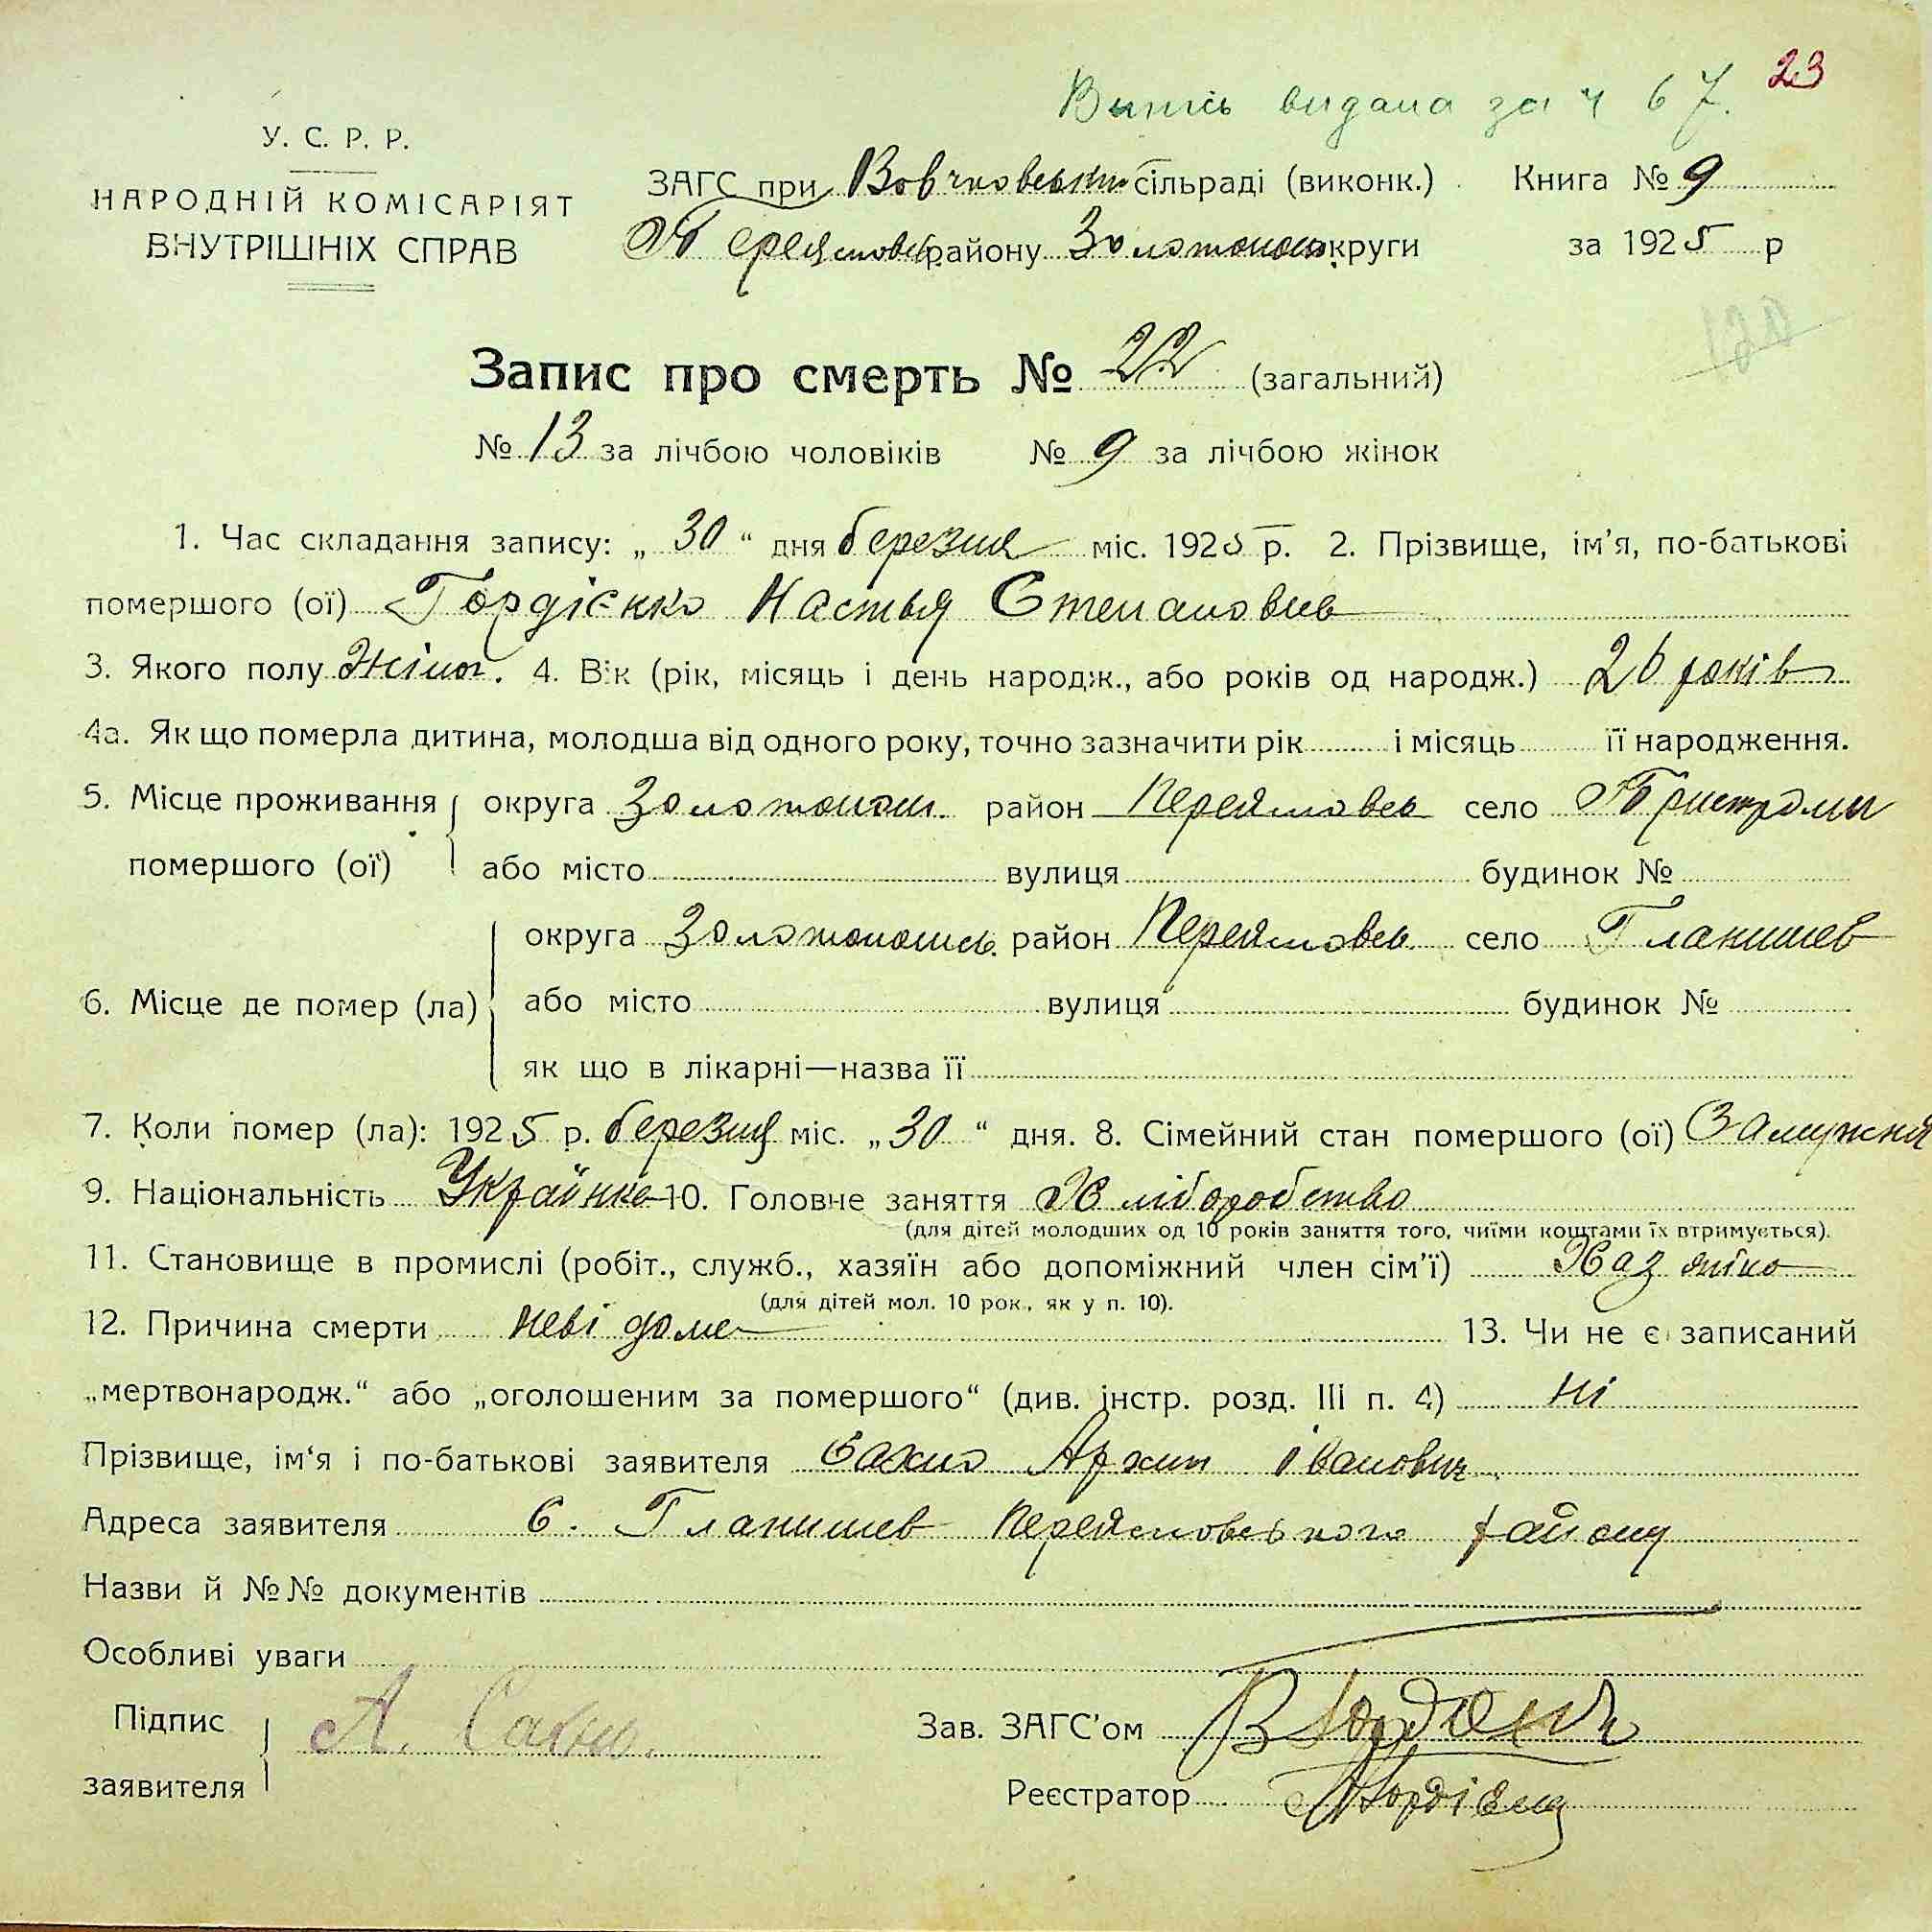 23
Витіс видана за ч 67.
У. С. Р. Р.
НАРОДНІЙ КОМІСАРІЯТ
ВНУТРІШНІХ СПРАВ
ЗАГС при Вовчковській сільраді (виконк.) Книга № 9
Переяславськ району Золотонош. округи за 1925 р
Запис про смерть № 22 (загальний)
№ 13 за лічбою чоловіків № 9 за лічбою жінок
1. Час складання запису: „ 30 “ дня березня міс. 1925 р. 2. Прізвище, ім’я, по-батькові
помершого (ої) Гордієнко Настья Степановна
3. Якого полу Жіноч. 4. Вік (рік, місяць і день народж., або років од народж.) 26 років
4а. Як що померла дитина, молодша від одного року, точно зазначити рік і місяць її народження.
5. Місце проживання округа Золотонош. район Переяславськ село Пристроми
помершого (ої) або місто вулиця будинок №
округа Золотоношськ. район Переяславськ село Гланишев
6. Місце де помер (ла) або місто вулиця будинок №
як що в лікарні—назва її
7. Коли помер (ла): 1925 р. березня міс. „30 “ дня. 8. Сімейний стан помершого (ої) Замужня
9. Національність Українка 10. Головне заняття Хліборобство
(для дітей молодших од 10 років заняття того, чиїми коштами їх втримується).
11. Становище в промислі (робіт., служб., хазяїн або допоміжний член сім’ї) Хазяйка
(для дітей мол. 10 рок., як у п. 10).
12. Причина смерти невідоме 13. Чи не є записаний
„мертвонародж.“ або „оголошеним за помершого“ (див. інстр. розд. III п. 4) Ні
Прізвище, ім‘я і по-батькові заявителя Сахно Архип Іванович
Адреса заявителя С. Гланишев Переяславського району
Назви й №№ документів
Особливі уваги
Підпис
заявителя
А. Сахно.
Зав. ЗАГС’ом
Реєстратор